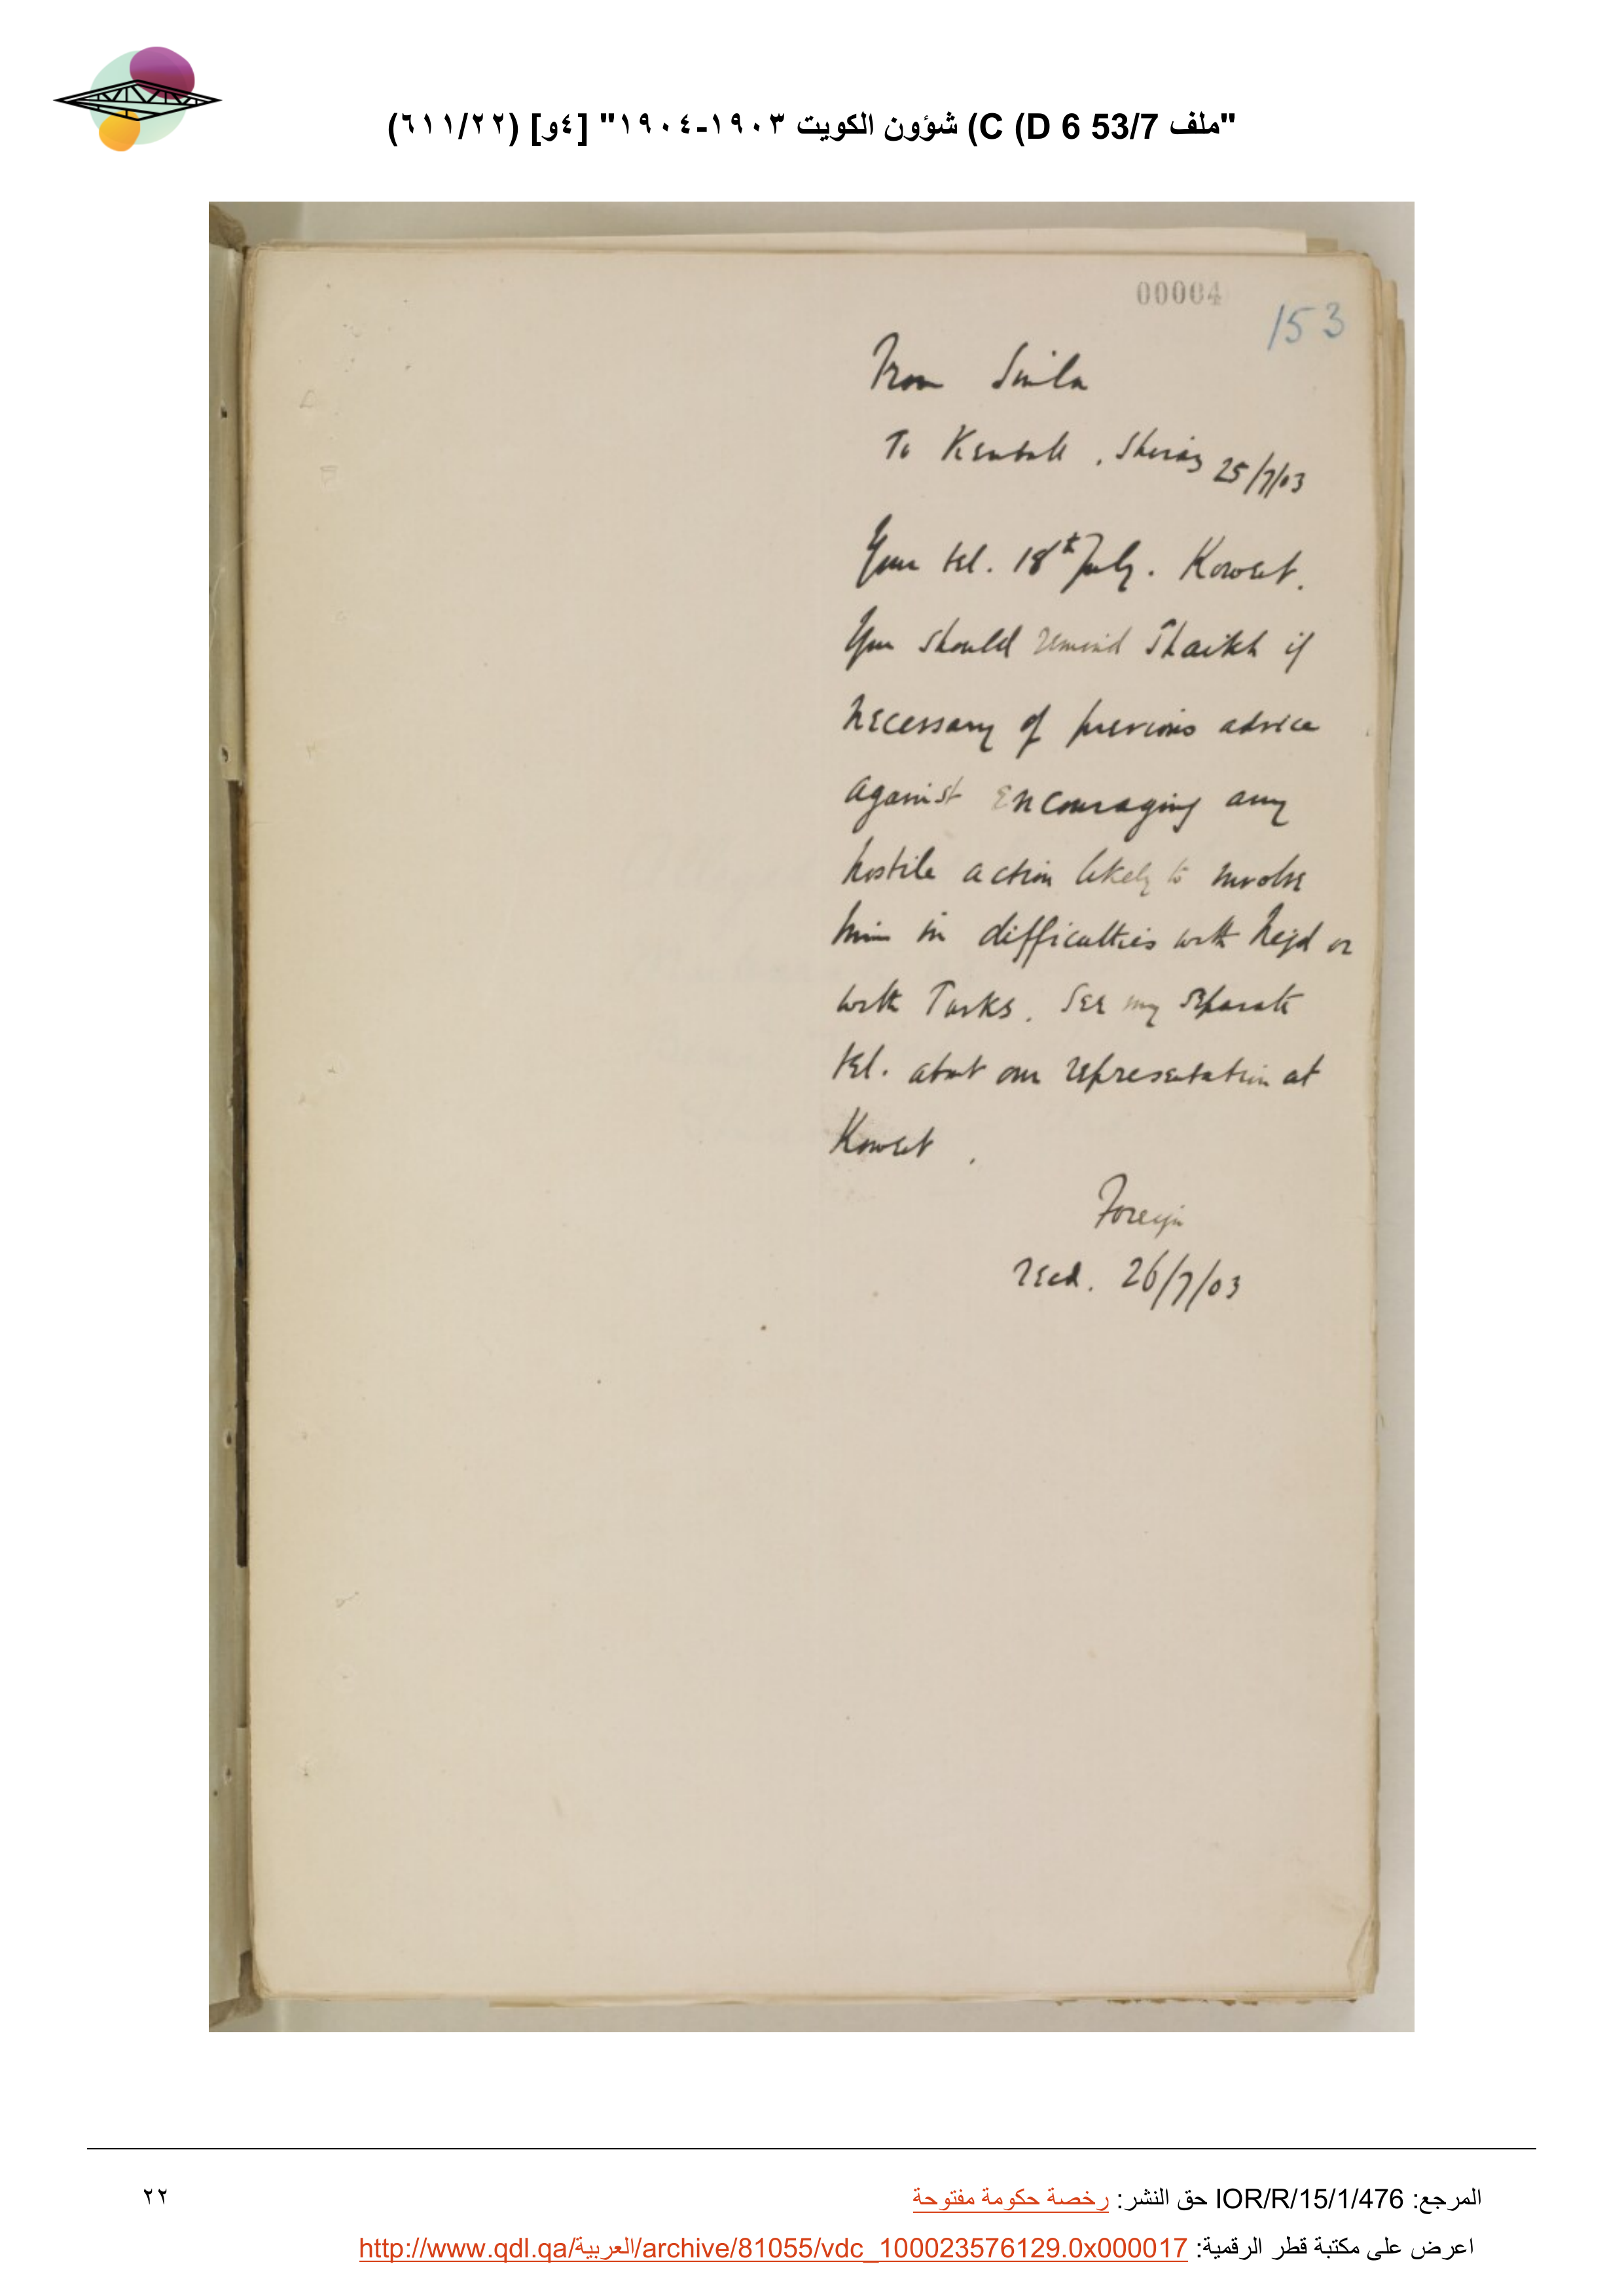 "ملف 53/7 C (D 6) شؤون الكويت ١٩٠٣-١٩٠٤" [٤و] (٦١١/٢٢)
00004
153
From Simla
To Kemball, Shiraz 25/7/03
Your tel. 18th July. Koweit.
You should remind Shaikh if
necessary of previous advice
against encouraging any
hostile action likely to involve
him in difficulties with Nejd or
with Turks. See my separate
tel. about our representation at
Koweit.
Foreign
recd. 26/7/03
المرجع: IOR/R/15/1/476 حق النشر: رخصة حكومة مفتوحة
٢٢
اعرض على مكتبة قطر الرقمية: http://www.qdl.qa/العربية/archive/81055/vdc_100023576129.0x000017